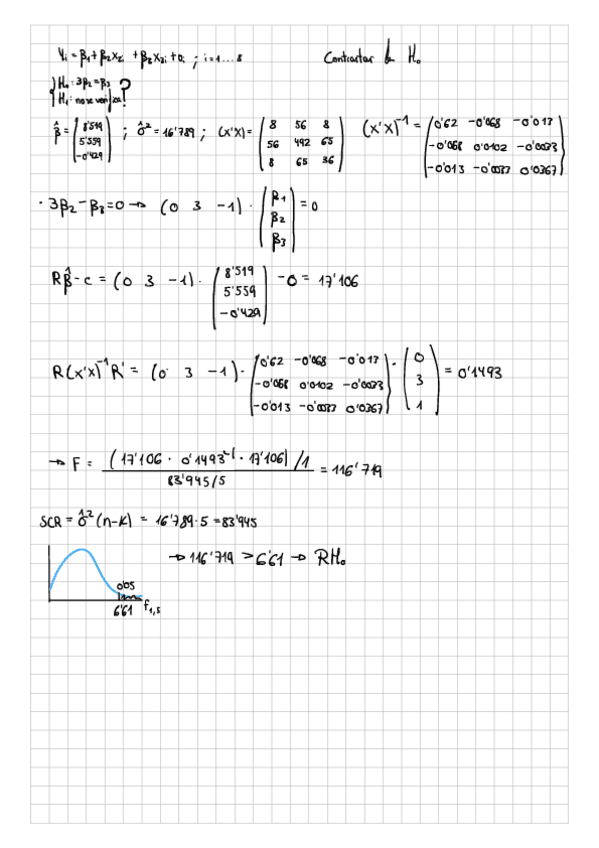 Yi = β1 + β2X2i + β3X3i + Ui ; i = 1....8 Contrastar la H0
H0: 3β2 = β3
H1: no se verifica ?
β̂ = (8'519 5'559 -0'429) ; σ̂² = 16'789 ; (X'X) = (8 56 8 / 56 492 65 / 8 65 36) (X'X)⁻¹ = (0'62 -0'068 -0'013 / -0'068 0'0102 -0'0033 / -0'013 -0'0033 0'0367)
· 3β2 - β3 = 0 → (0 3 -1) · (β1 β2 β3) = 0
Rβ̂ - c = (0 3 -1) · (8'519 5'559 -0'429) - 0 = 17'106
R(X'X)⁻¹R' = (0 3 -1) · (0'62 -0'068 -0'013 / -0'068 0'0102 -0'0033 / -0'013 -0'0033 0'0367) · (0 3 1) = 0'1493
→ F = (17'106 · 0'1493⁻¹ · 17'106) / 1
83'945/5
= 116'719
SCR = σ̂² (n-K) = 16'789 · 5 = 83'945
→ 116'719 > 6'61 → RH0
0'05
6'61 f1,5